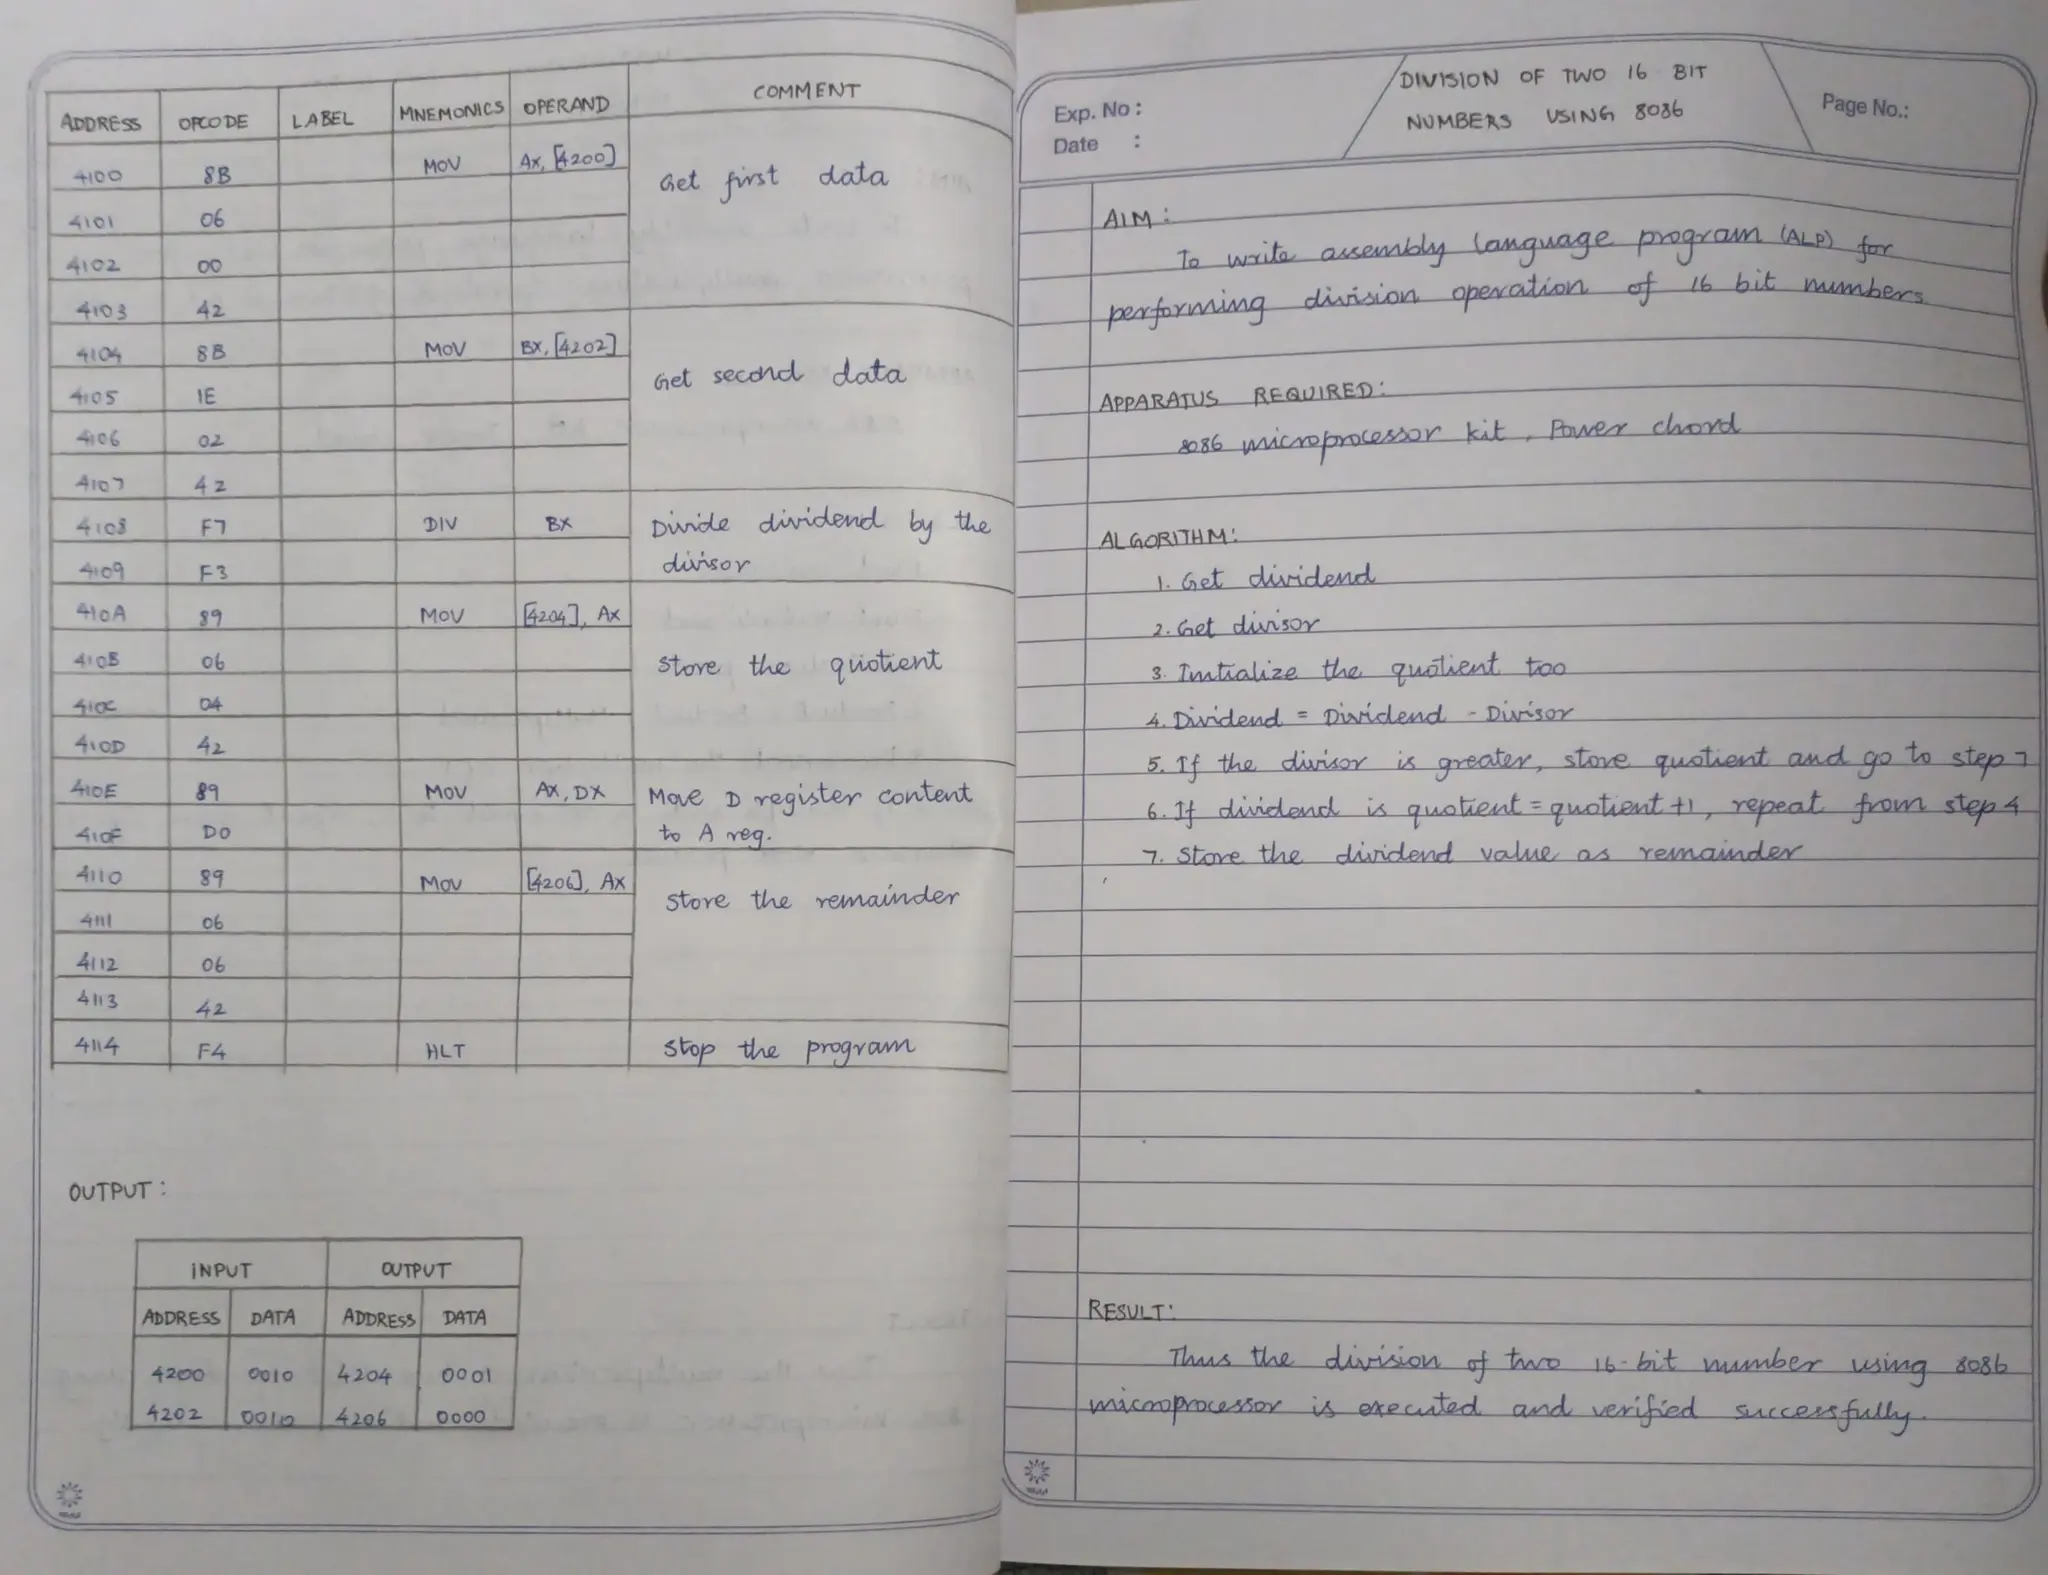 ADDRESS OPCODE LABEL MNEMONICS OPERAND COMMENT
4100 8B MOV AX, [4200] Get first data
4101 06
4102 00
4103 42
4104 8B MOV BX, [4202] Get second data
4105 1E
4106 02
4107 42
4108 F7 DIV BX Divide dividend by the
4109 F3 divisor
410A 89 MOV [4204], AX
410B 06 Store the quotient
410C 04
410D 42
410E 89 MOV AX, DX Move D register content
410F D0 to A reg.
4110 89 MOV [4206], AX Store the remainder
4111 06
4112 06
4113 42
4114 F4 HLT Stop the program
OUTPUT :
INPUT OUTPUT
ADDRESS DATA ADDRESS DATA
4200 0010 4204 0001
4202 0010 4206 0000
Exp. No :
Date :
DIVISION OF TWO 16 BIT
NUMBERS USING 8086
Page No.:
AIM :
To write assembly language program (ALP) for
performing division operation of 16 bit numbers
APPARATUS REQUIRED:
8086 microprocessor kit, Power chord
ALGORITHM:
1. Get dividend
2. Get divisor
3. Initialize the quotient too
4. Dividend = Dividend - Divisor
5. If the divisor is greater, store quotient and go to step 7
6. If dividend is quotient = quotient +1, repeat from step 4
7. Store the dividend value as remainder
RESULT:
Thus the division of two 16-bit number using 8086
microprocessor is executed and verified successfully.